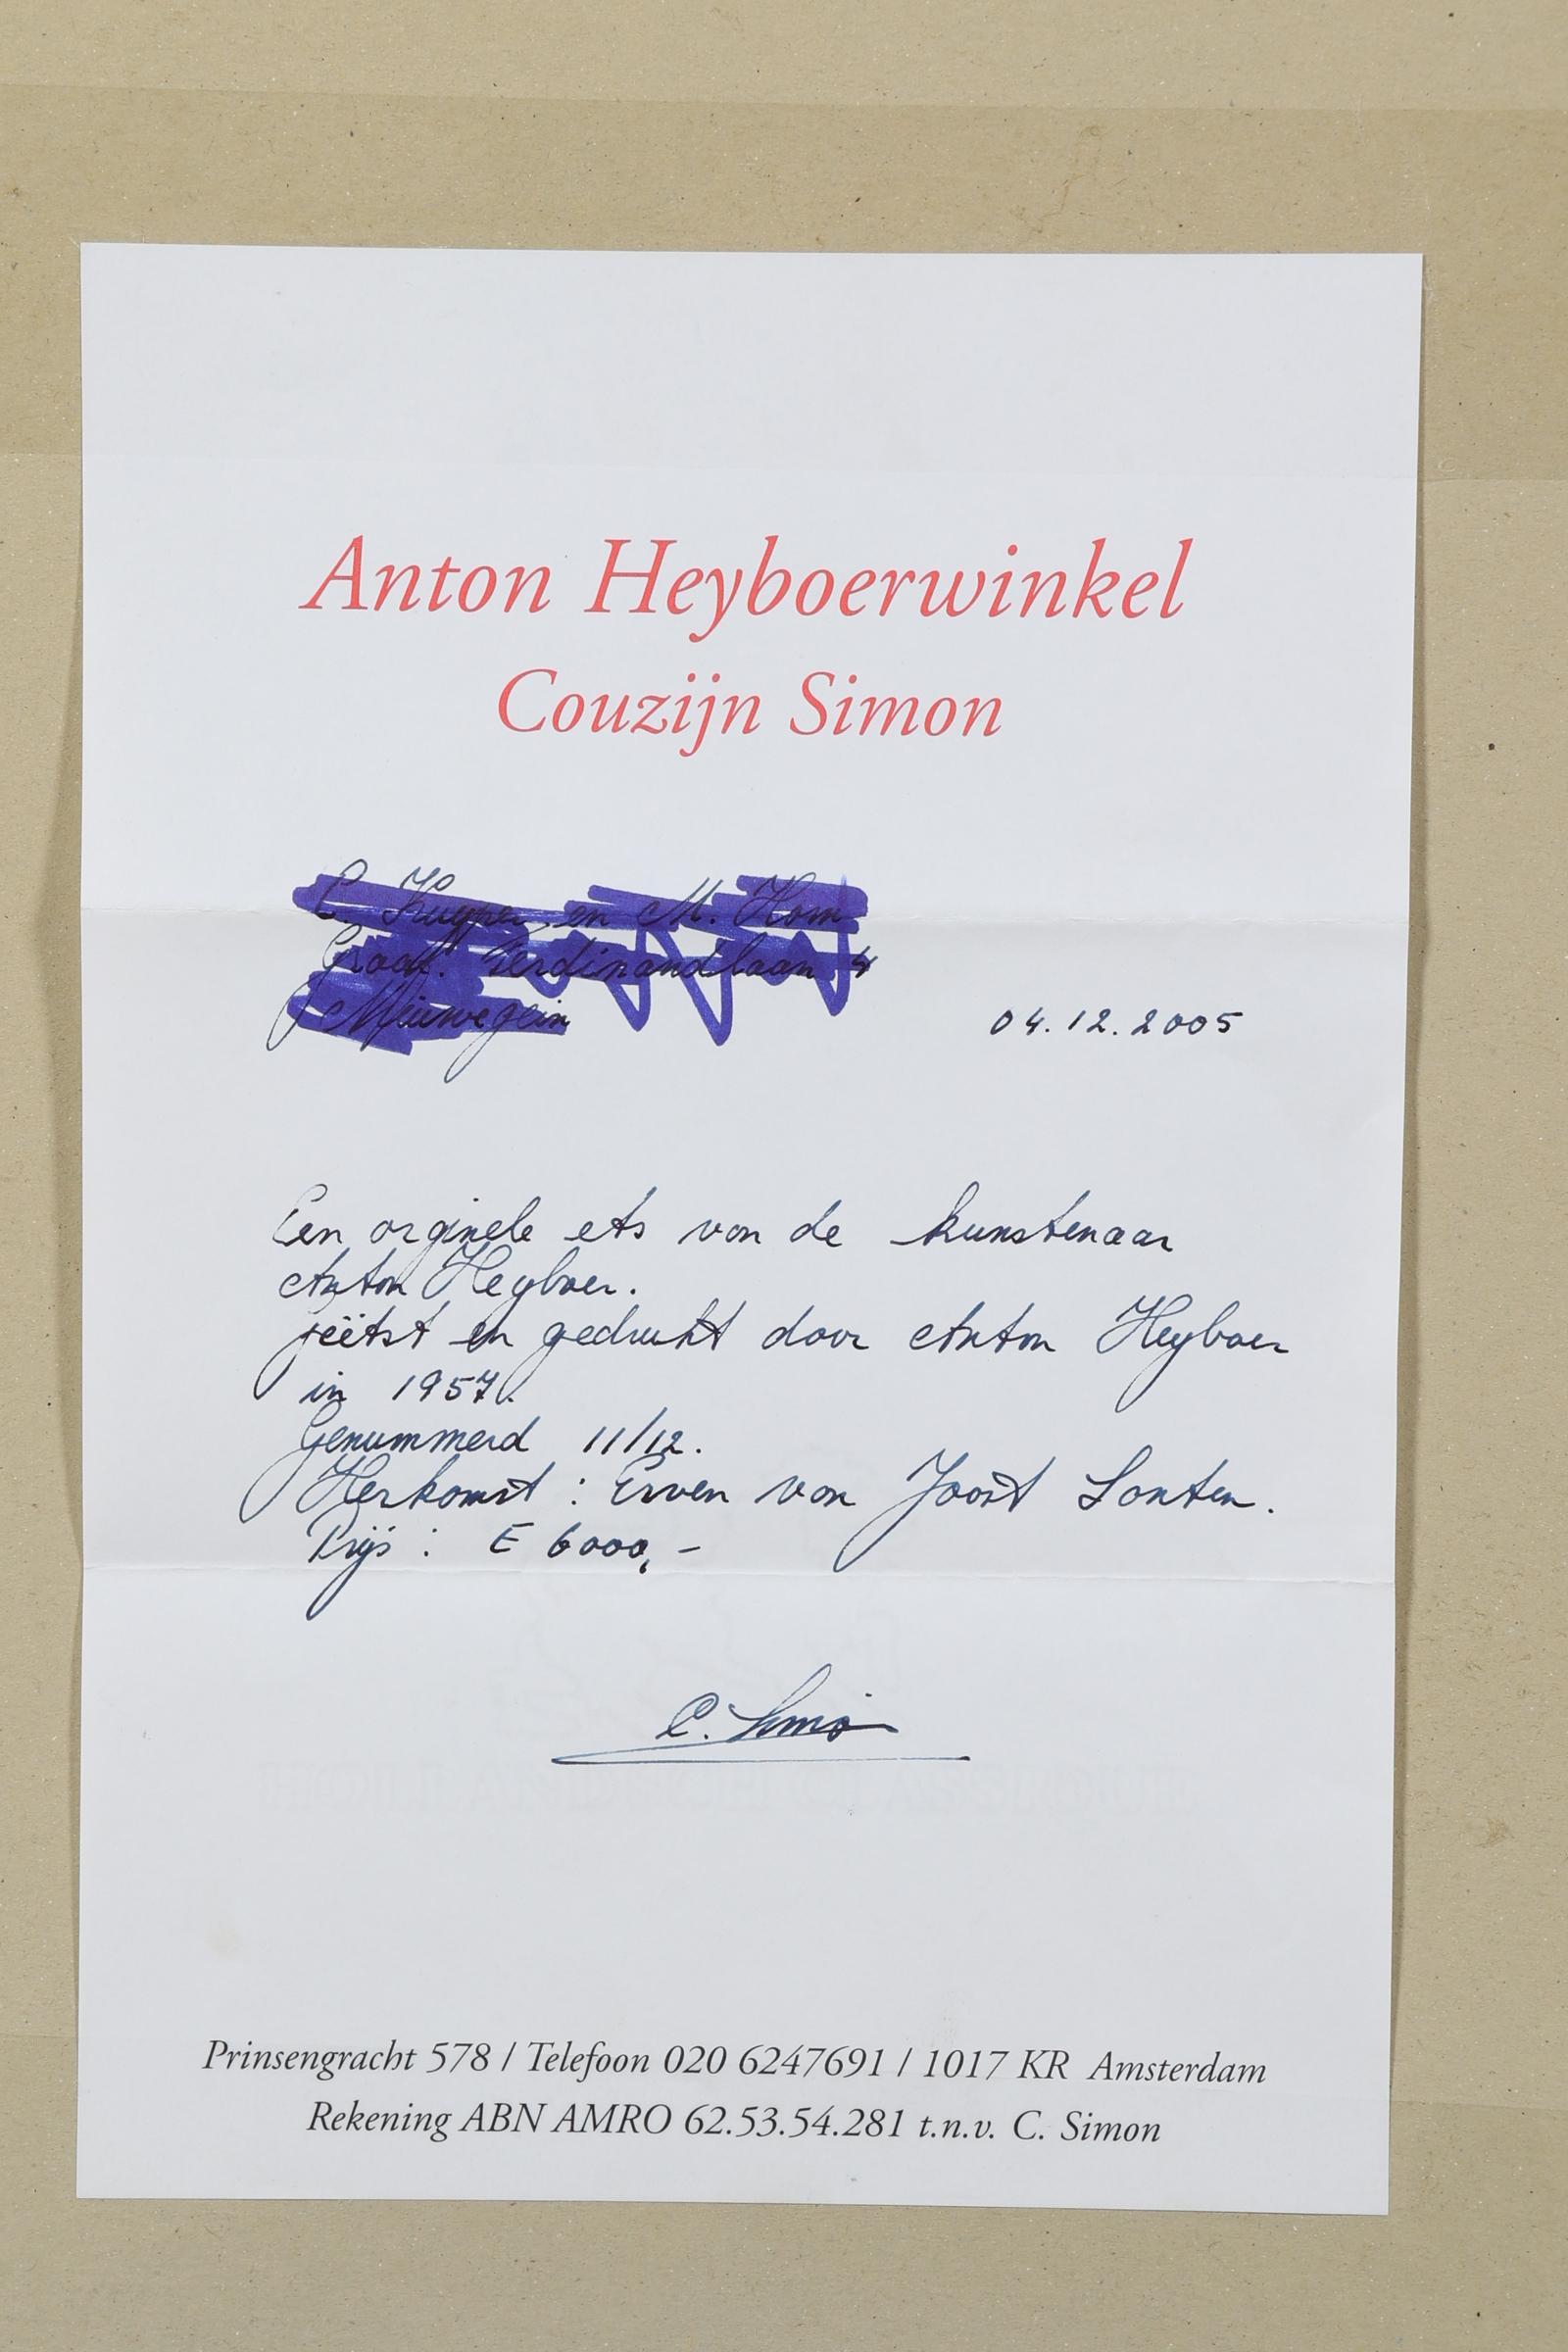 Anton Heyboerwinkel
Couzijn Simon
en M.
04.12.2005
Een orginele ets van de kunstenaar
Anton Heyboer.
geëtst en gedrukt door Anton Heyboer
in 1957.
Genummerd 11/12.
Herkomst : Erven van Joost
Prijs : € 6000,-
C. Simon
Prinsengracht 578 / Telefoon 020 6247691 / 1017 KR Amsterdam
Rekening ABN AMRO 62.53.54.281 t.n.v. C. Simon